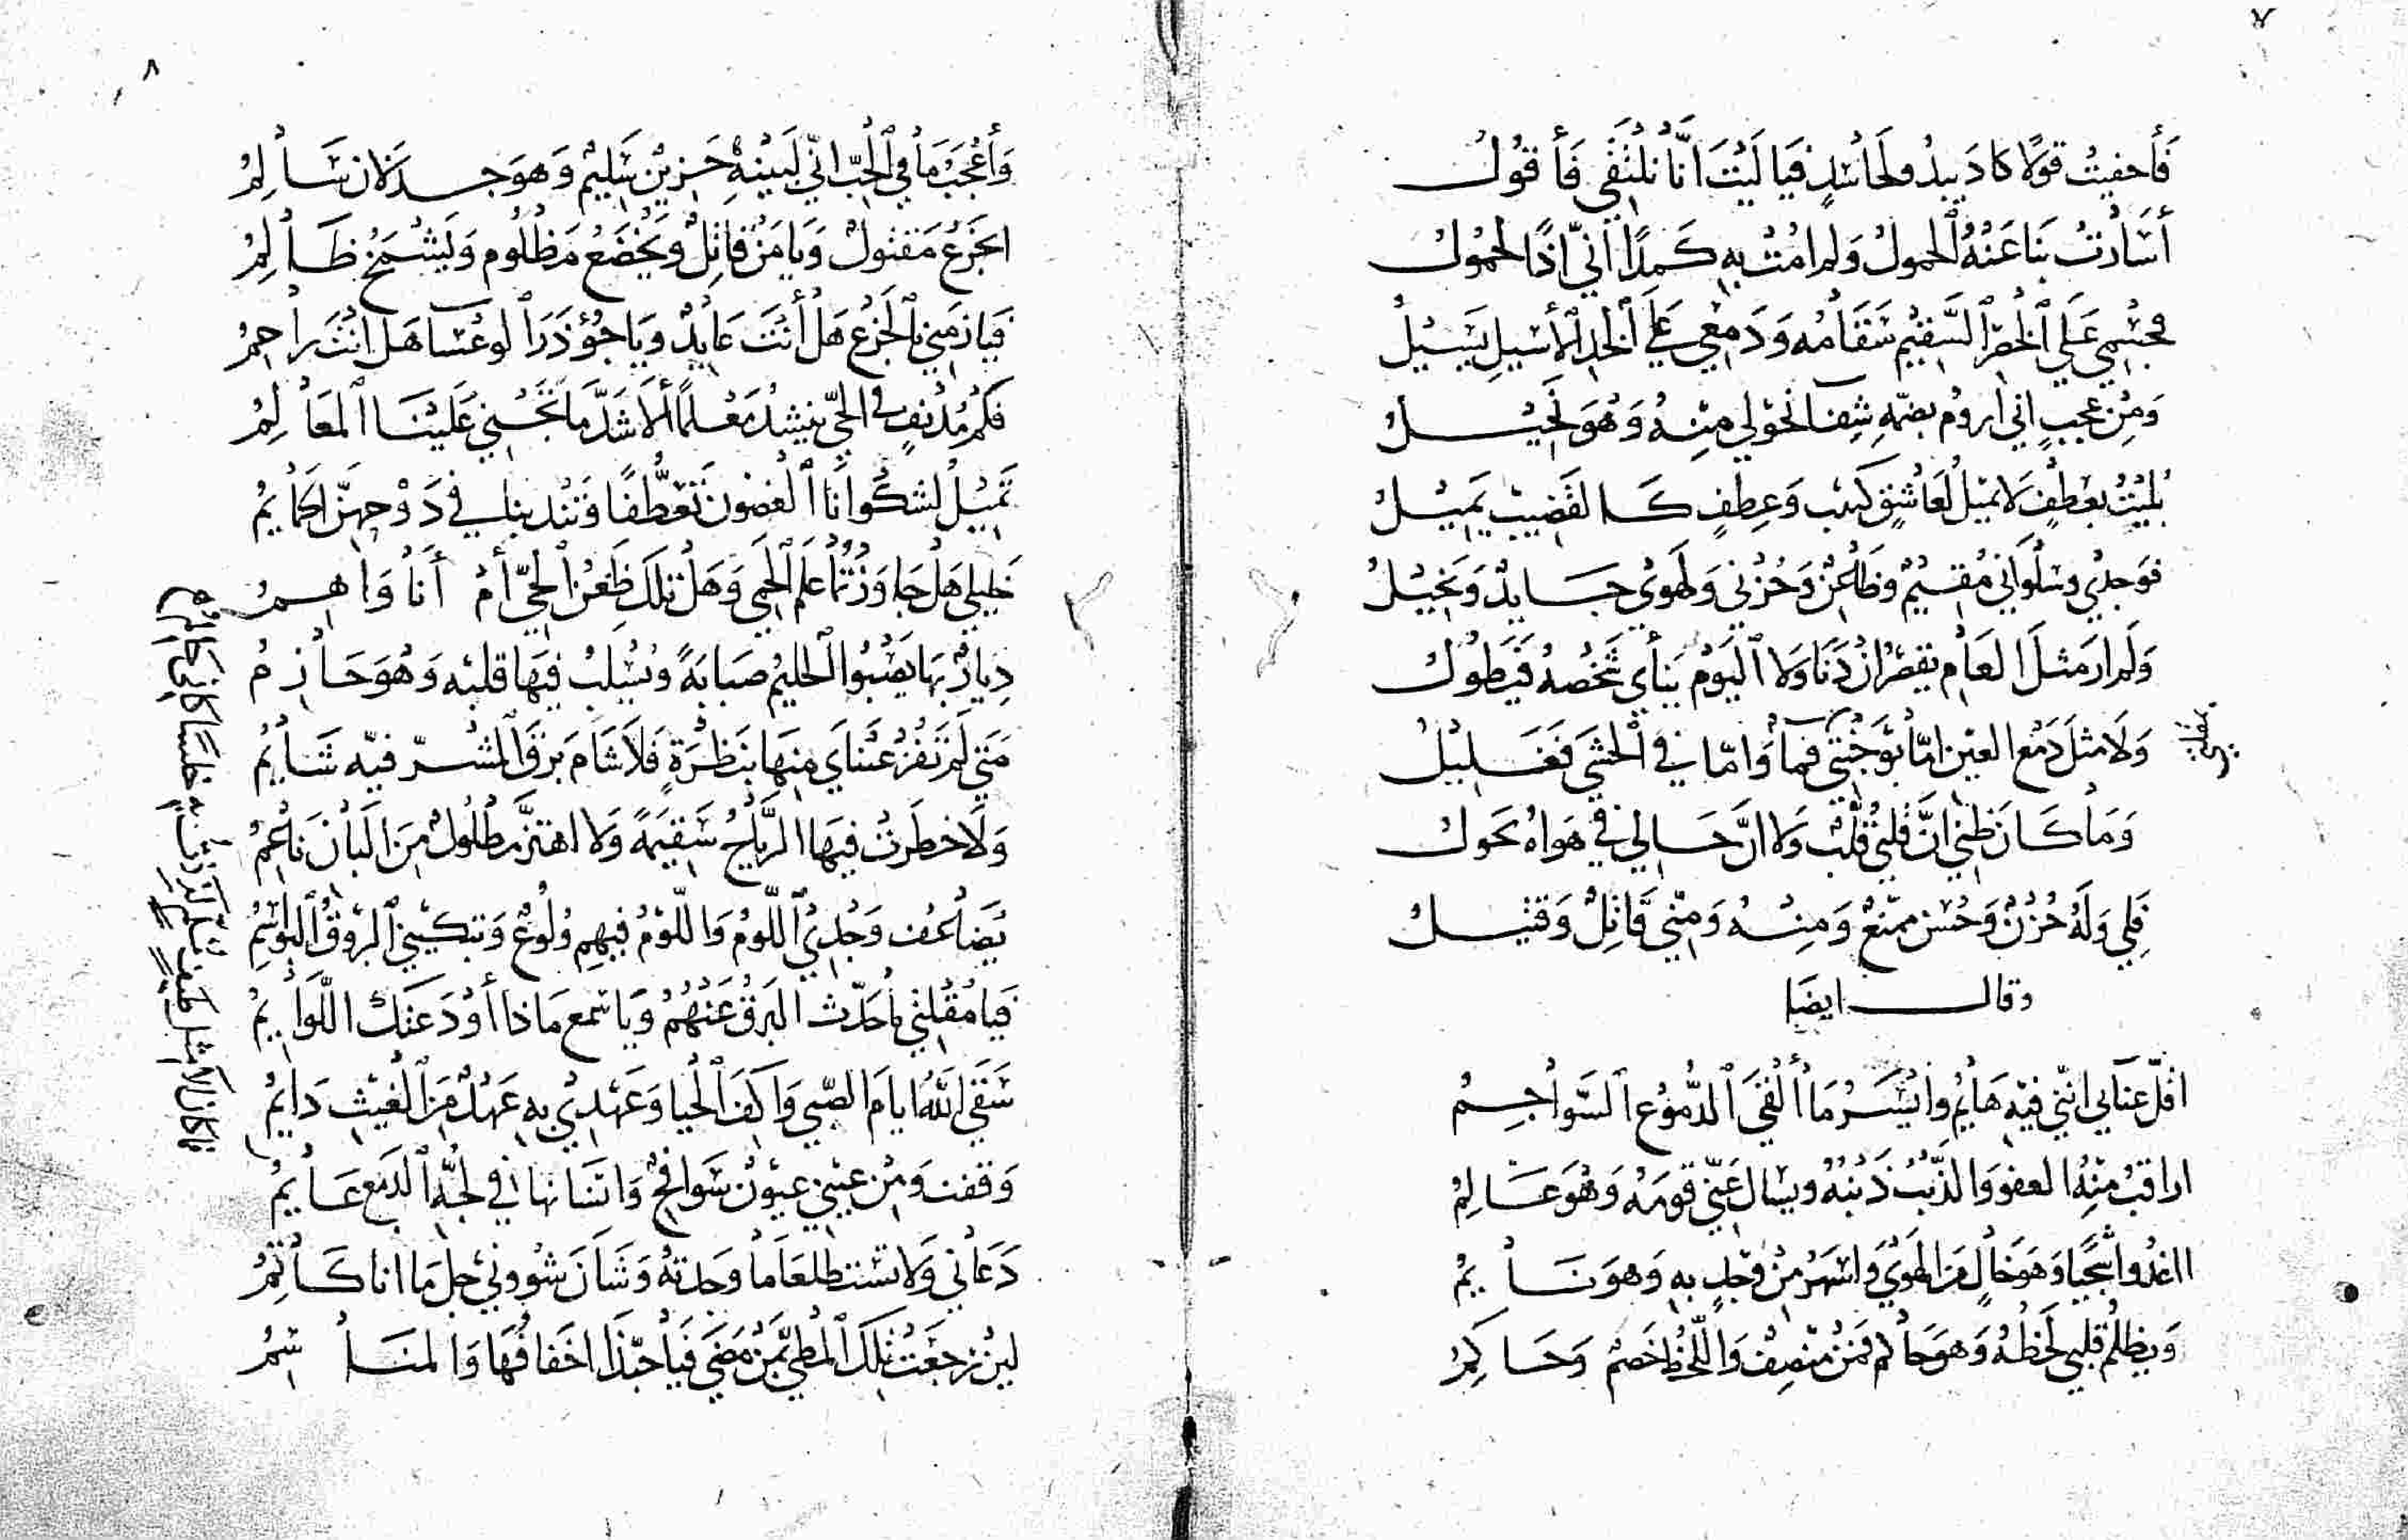 ٧
فَأخفيتُ قولًا كادَ يبدُو لحَاسُدٍ فيَا ليْتَ أنَّا نلتَقي فَأقُولُ
أسَارتْ بنَا عَنْهُ الحمولُ وَلم امُتْ بهِ كَمدًا انّي اذًا لحمُولُ
فجسْمي عَلَى الخصْرِ السَّقيْمِ سَقَامُه وَدَمْعي عَلَى الخدِ الأسْيلِ يَسْيلُ
وَمنْ عجبٍ اني اروُم بضمّهِ شِفآ نحوْلي منْهُ وَهُوَ نَحيْلُ
بُليْتُ بعَطْفٍ لَا يميْلُ لعَاشقٍ كَئيب وَعِطفٍ كَالقَضيب يَميْلُ
فوَجدْي وسْلُوَاني مُقيْمٌ وظَاعنٌ وَحُزْني وَلَهوْي جَايدٌ وَبَخيْلُ
وَلَم ارَ مثلَ العَامِ يقصُرُ ان دَنَا وَلا اليَوْمِ يَنأى شَخصُهُ فَيَطُولُ
وَلَا مثلَ دَمْعِ العيْنِ امّا بوَجْنتَي فمآ وَامّا في الحَشَى فَغَليْلُ
وَمَا كَانَ ظَني انَّ قَلبْي قُلّبٌ وَلا انَّ حَالي في هَوَاهُ تحَولُ
فَلي وَلَهُ حُزْنٌ وَحُسْن ممنّعٌ وَمنْهُ وَمنّي قَاتِلٌ وَقتيْلُ
وقال ايضًا
اقلّ عنَآئي انّني فيْهِ هَائمُ وايْسَرُ مَا ألْقَى الدُّموُع السَّوَاجِمُ
اراقبُ منْهُ العفوَ وَالذّنْبُ ذَنْبُهُ ويسْال عَنّي قومَهُ وَهُوَ عَالمُ
ااغدُوا شَجيًا وَهوَ خَالٍ منَ الهَوَى وَاسْهَرُ منْ وَجدٍ بهِ وَهوَ نَايمُ
وَيظلمُ قلبي لَحظُهُ وَهوَ حَاكم فمَنْ منْصِفٌ وَاللّحظُ خَصْم وَحَاكِمُ
٨
وَأعْجَبُ مَا في الحُبّ انّي لبَيْنهِ حَزيْن سَليْم وَهوَ جدلَان سَالِمُ
ايجَزعُ مَقتولٌ وَيَامَنُ قاتِلٌ ويَخْضَعُ مَظْلُوم وَيَشْمَخُ ظَالِمُ
فيَا زمَني بالجَزْعِ هَلْ أنْتَ عَايدٌ وَيَا جُؤذَرَ الوعسَآ هَل انْتَ رَاحِمُ
فكَم مُدْنفٍ في الحيّ ينشدُ مَعْلمًا ألَا شَدَّ مَا تَجْني عَلَيْنَا المعَالِمُ
تَميْلُ لشكْوَانَا الغصُون تَعَطُّفًا وَتنْدبنا في دَوْحهنّ الحمَايمُ
خَليلي هَلْ جَاوَزْتُمَا عَلَم الحِمَى وَهَلْ تلكَ ظَعْن الحَيّ أمْ أنَا وَاهِمُ
دِيارٌ بهَا يَصْبُوا الحليْمُ صَبَابَةً وَيُسْلَبُ فيْهَا قلبَه وَهُوَ حَازمُ
مَتَى لَم تَفُزْ عَيْنَاي منهَا بنَظْرَةٍ فَلَا شَامَ بَرْقَ البُشْرِ فيْه شَايمُ
وَلَا خطَرتْ فيهَا الرّيَاحُ سَقيمَةً وَلا اهتزَّ مطْلُولٌ منَ البَان نَاعمُ
يُضَاعف وَجْدِي اللّوْمُ وَاللّوْمُ فيْهمِ وُلُوعٌ وَتبْكيْني البرُوْقُ البَوَاسِمُ
فيَا مُقْلتَي مَا حَدّث البَرْقُ عَنْهُمُ وَيَا سمع مَاذا أوْدَعَتْكَ اللّوَايمُ
سَقَى اللهُ ايامَ الصّبى وَاكفَ الحَيا وَعَهْدي بهِ عَهْدٌ منَ الغَيْثِ دَايمُ
وَقفت وَمن عيْني عيوْن سَوافحٌ وَانسَانها في لجّةِ الدَمع عَايمُ
دَعَاني وَلا تسْتطلعَا مَا وَجدتهُ وَشَان شُووني جلّ مَا انا كَاتمُ
ليْن رَجَعَتْ تلكَ المطيّ بمَنْ مَضَى فيَا حَبّذَا اخَفافُهَا وَالمنَاسِمُ